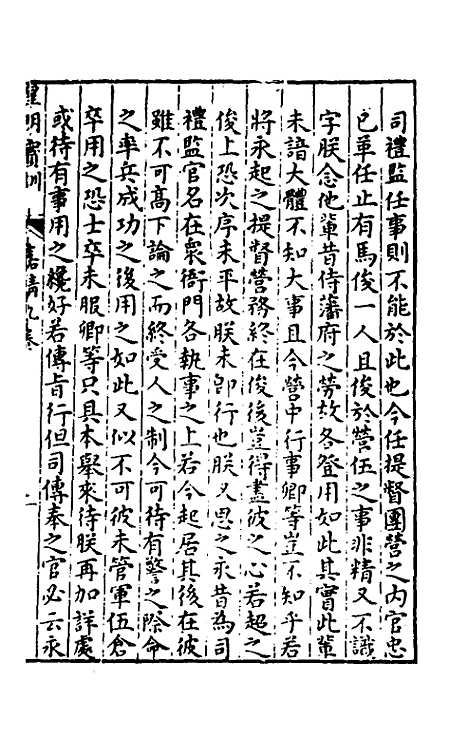 司禮監任事則不能於此也今任提督團營之内官忠
已革任止有馬俊一人且俊於營伍之事非精又不識
字朕念他輩昔侍藩府之勞故各登用如此其實此輩
未諳大體不知大事且今營中行事卿等豈不知乎若
將永起之提督營務終在俊後豈得盡彼之心若超之
俊上恐次序未平故朕未即行也朕又思之永昔為司
禮監官名在衆衙門各執事之上若今起居其後在彼
雖不可高下論之而終受人之制今可待有警之際命
之率兵成功之後用之如此又似不可彼未管軍伍倉
卒用之恐士卒未服卿等只具本舉來待朕再加詳處
或待有事用之纔好若傳㫖行但司傳奉之官必云永
皇明寳訓 嘉靖九卷